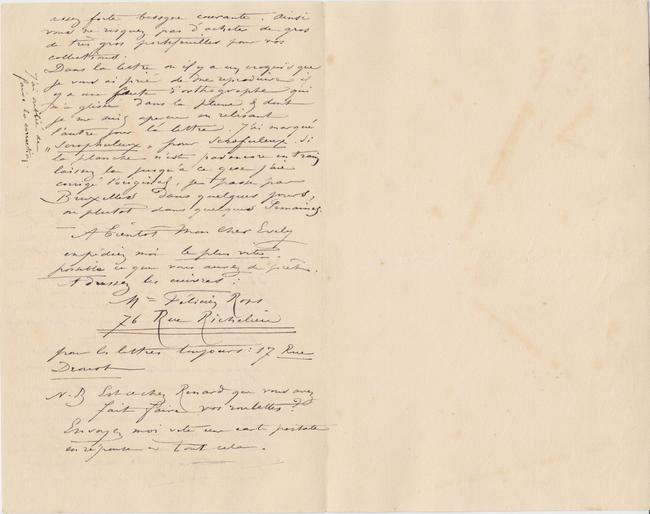 assez forte besogne courante. Ainsi
vous ne risquez pas d'acheter de gros
de très gros portefeuilles pour vos
collections.
Dans la lettre où il y a un croquis que
je vous ai prié de me reproduire il
y a une faute d'orthographe qui
m'a glissé dans la plume & dont
je me suis aperçu en relisant
l'autre jour la lettre. J'ai marqué
"Scrophuleux" pour Scrofuleux. Si
la planche n'est pas encore en train
laissez la jusqu'à ce que j'aie
corrigé l'original, je passe par
Bruxelles dans quelques jours,
ou plutot dans quelques semaines,
J'ai oublié de
faire la correction
– A bientot Mon Cher Evely
expédiez moi le plus vite
possible ce que vous aurez de prêt.
Adressez les envois :
Mr Félicien Rops
76 Rue Richelieu
pour les lettres toujours : 17 Rue
Drouot
N.B Est ce chez Renard que vous avez
fait faire vos roulettes ?
Envoyez moi vite une carte postale
en réponse à tout cela.